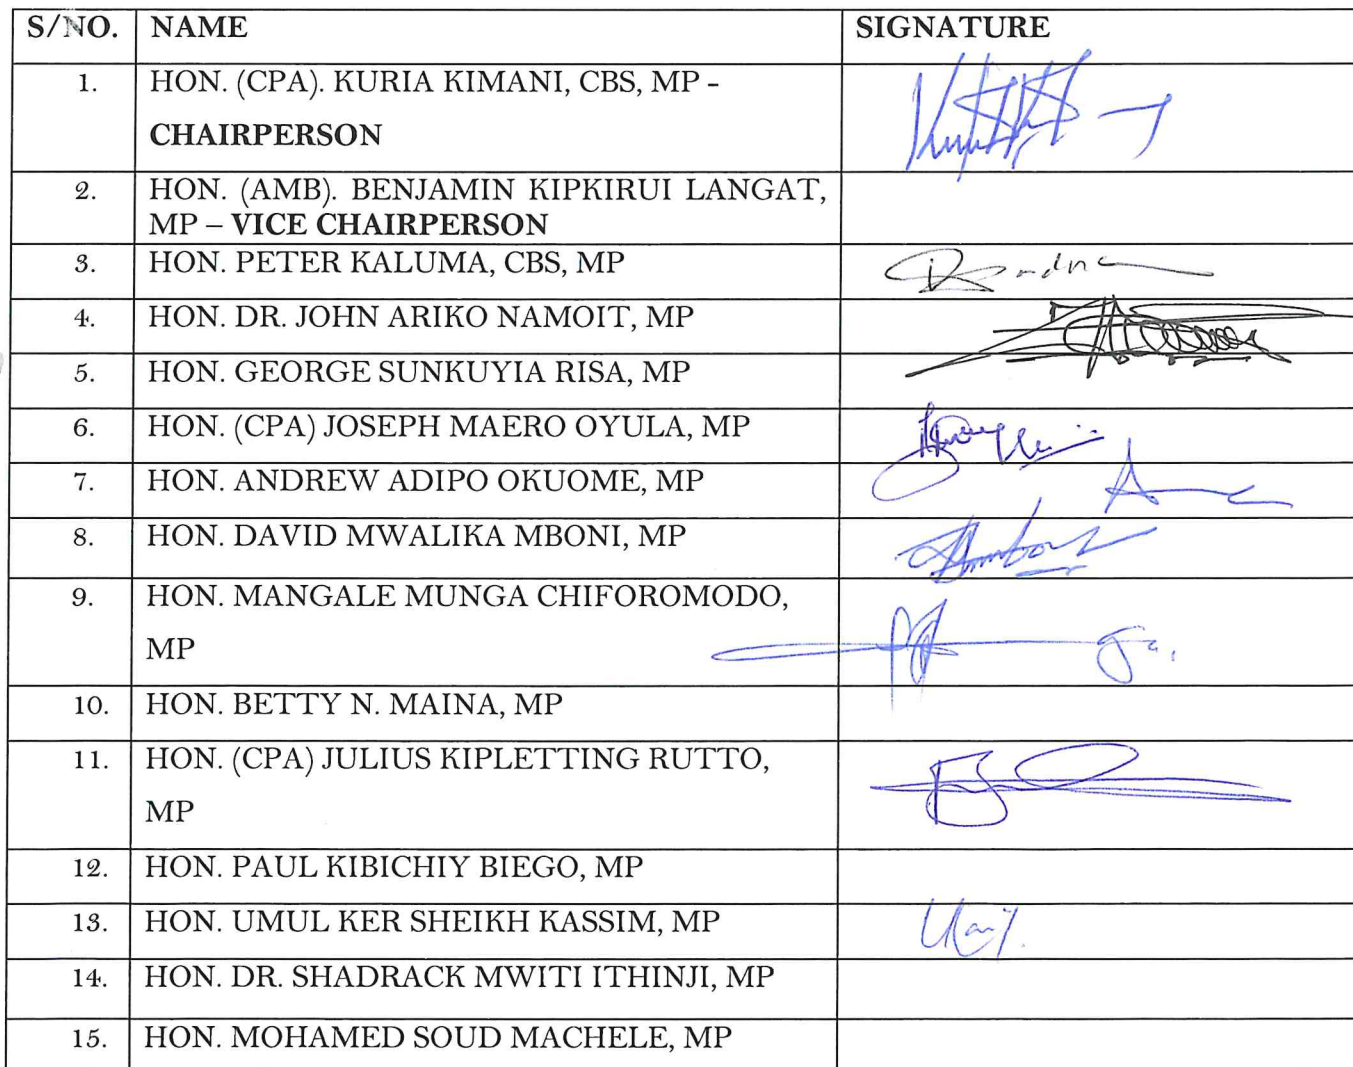 S/NO. NAME SIGNATURE
1. HON. (CPA). KURIA KIMANI, CBS, MP -
CHAIRPERSON
2. HON. (AMB). BENJAMIN KIPKIRUI LANGAT,
MP – VICE CHAIRPERSON
3. HON. PETER KALUMA, CBS, MP
4. HON. DR. JOHN ARIKO NAMOIT, MP
5. HON. GEORGE SUNKUYIA RISA, MP
6. HON. (CPA) JOSEPH MAERO OYULA, MP
7. HON. ANDREW ADIPO OKUOME, MP
8. HON. DAVID MWALIKA MBONI, MP
9. HON. MANGALE MUNGA CHIFOROMODO,
MP
10. HON. BETTY N. MAINA, MP
11. HON. (CPA) JULIUS KIPLETTING RUTTO,
MP
12. HON. PAUL KIBICHIY BIEGO, MP
13. HON. UMUL KER SHEIKH KASSIM, MP
14. HON. DR. SHADRACK MWITI ITHINJI, MP
15. HON. MOHAMED SOUD MACHELE, MP